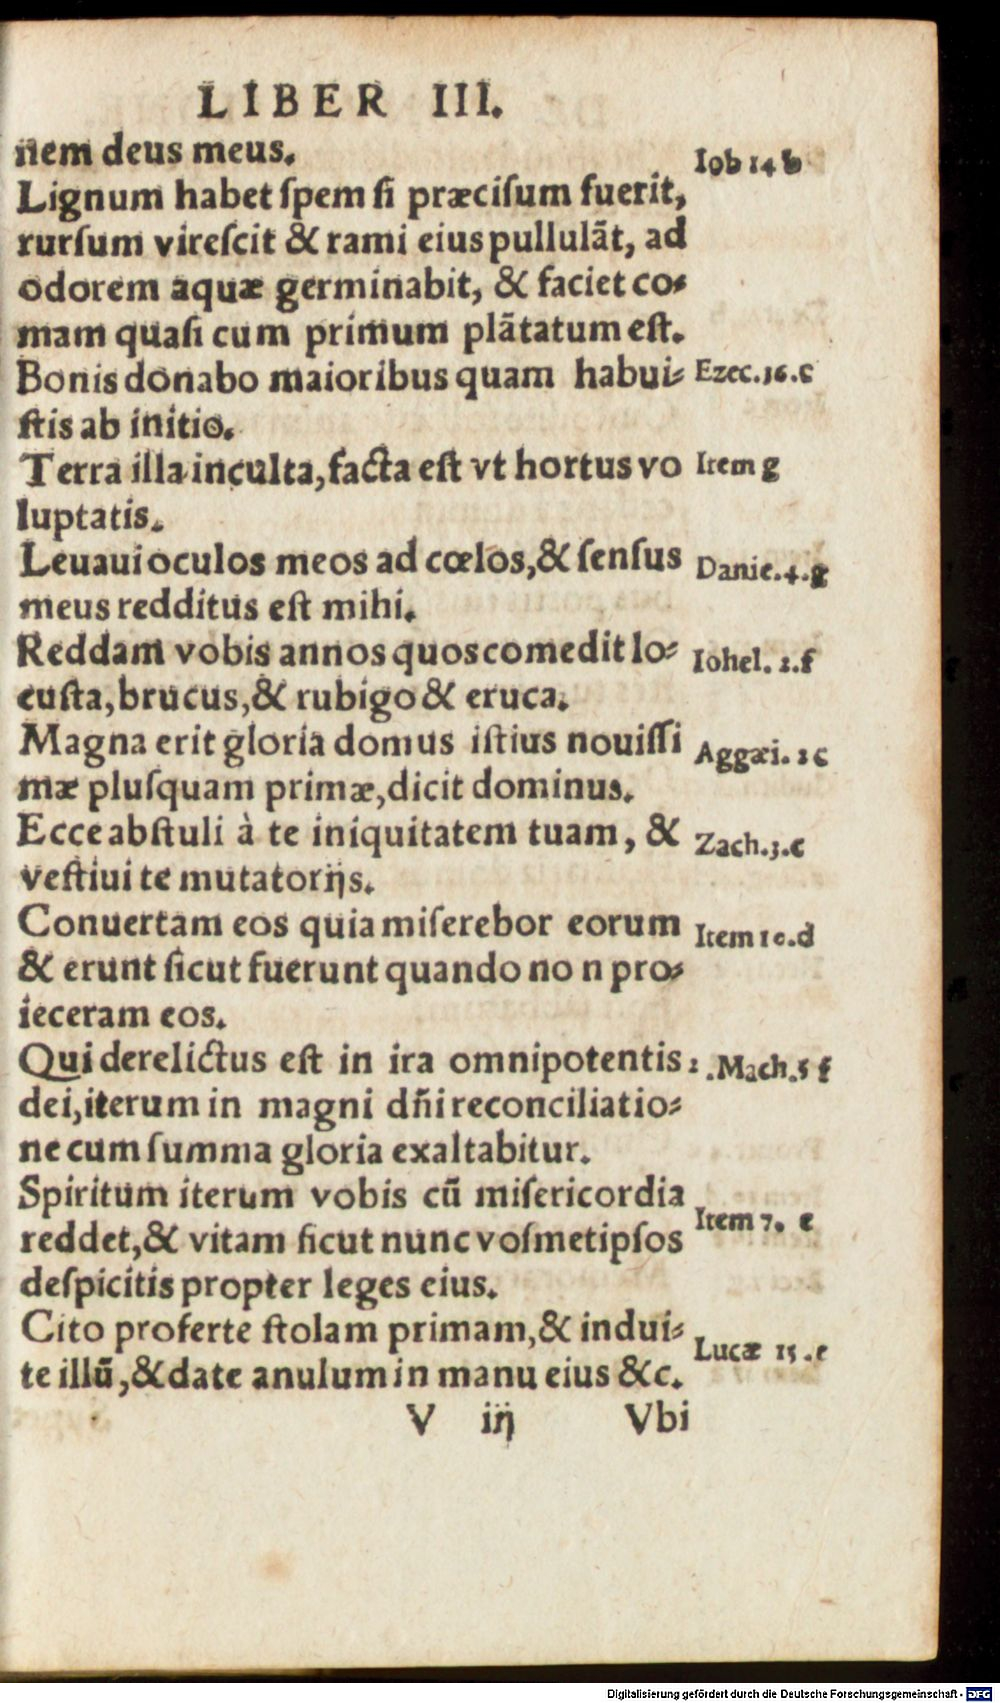 LIBER III.
nem deus meus.
Iob 14 b
Lignum habet ſpem ſi præciſum fuerit,
rurſum vireſcit & rami eius pullulãt, ad
odorem aquæ germinabit, & faciet co-
mam quaſi cum primum plãtatum eſt.
Bonis donabo maioribus quam habui- Ezec.36.c
ſtis ab initio.
Terra illa inculta, facta eſt vt hortus vo Item g
luptatis.
Leuaui oculos meos ad cœlos, & ſenſus Danie.4.g
meus redditus eſt mihi.
Reddam vobis annos quos comedit lo- Iohel. 2.f
cuſta, brucus, & rubigo & eruca.
Magna erit gloria domus iſtius nouiſſi Aggæi. 2 c
mæ pluſquam primæ, dicit dominus.
Ecce abſtuli à te iniquitatem tuam, & Zach.3.c
veſtiui te mutatorijs.
Conuertam eos quia miſerebor eorum Item 10.d
& erunt ſicut fuerunt quando no n pro-
ieceram eos.
Qui derelictus eſt in ira omnipotentis 2.Mach.5 f
dei, iterum in magni dñi reconciliatio-
ne cum ſumma gloria exaltabitur.
Spiritum iterum vobis cũ miſericordia
Item 7. e
reddet, & vitam ſicut nunc voſmetipſos
deſpicitis propter leges eius.
Cito proferte ſtolam primam, & indui-
Lucæ 15.e
te illũ, & date anulum in manu eius &c.
V iij Vbi
Digitalisierung gefördert durch die Deutsche Forschungsgemeinschaft - DFG